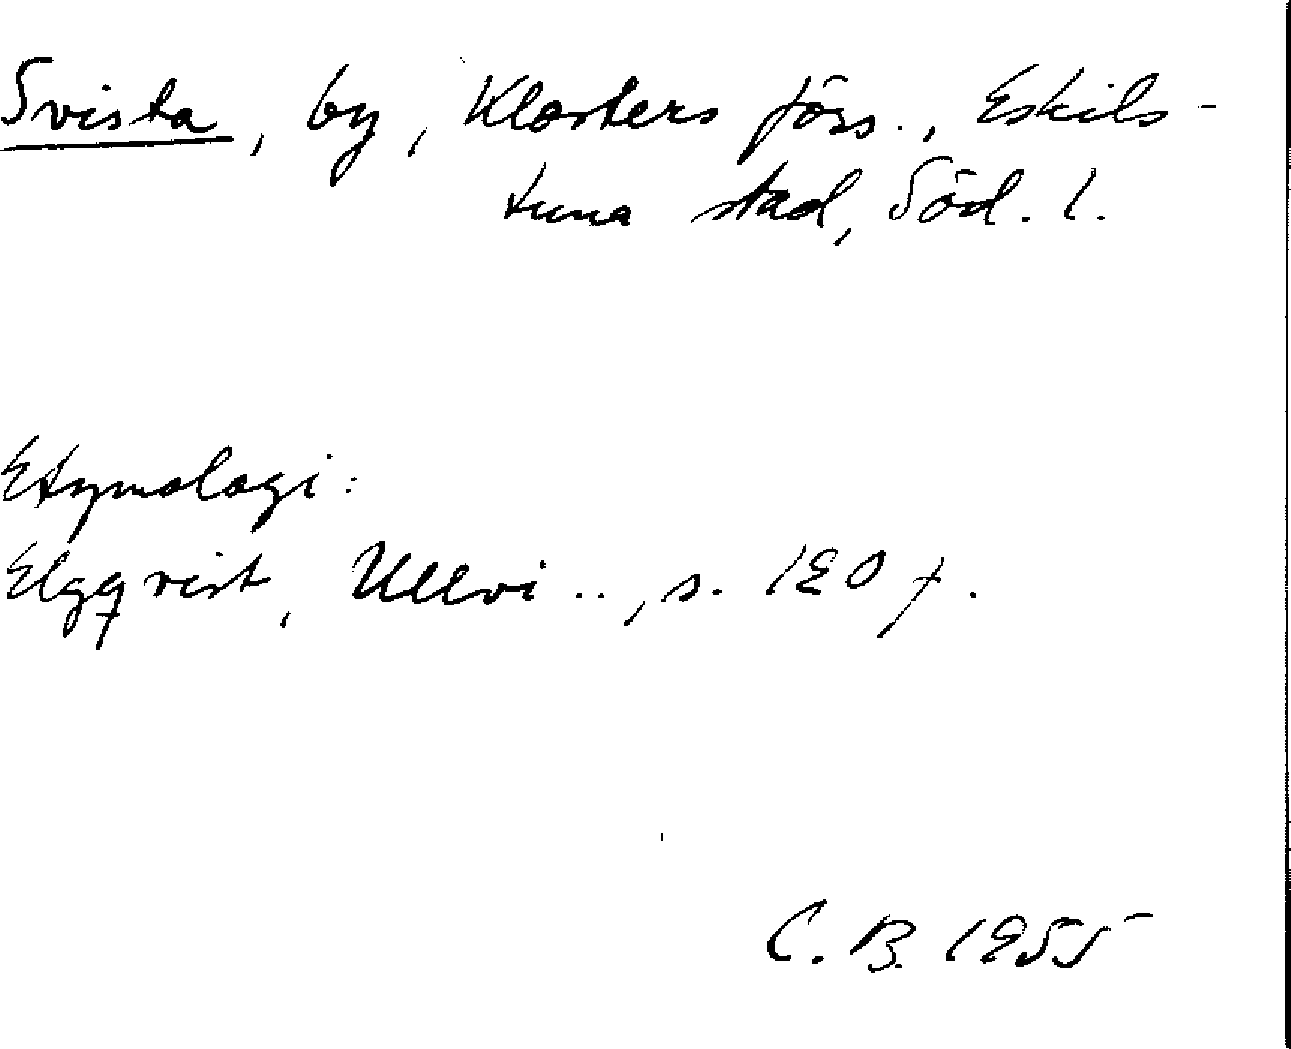 Svista, by, Klosters förs., Eskils-
tuna stad, Söd. l.
Etymologi:
Elgqvist, Ullvi .., s. 190 f.
C. B. 1955